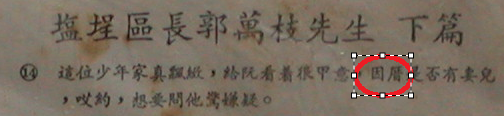 塩埕區長郭萬枝先生 下篇
⑭ 這位少年家真飄緻，給阮看着很甲意，因厝是否有妻兒
，哎約，想要問他驚嫌疑。